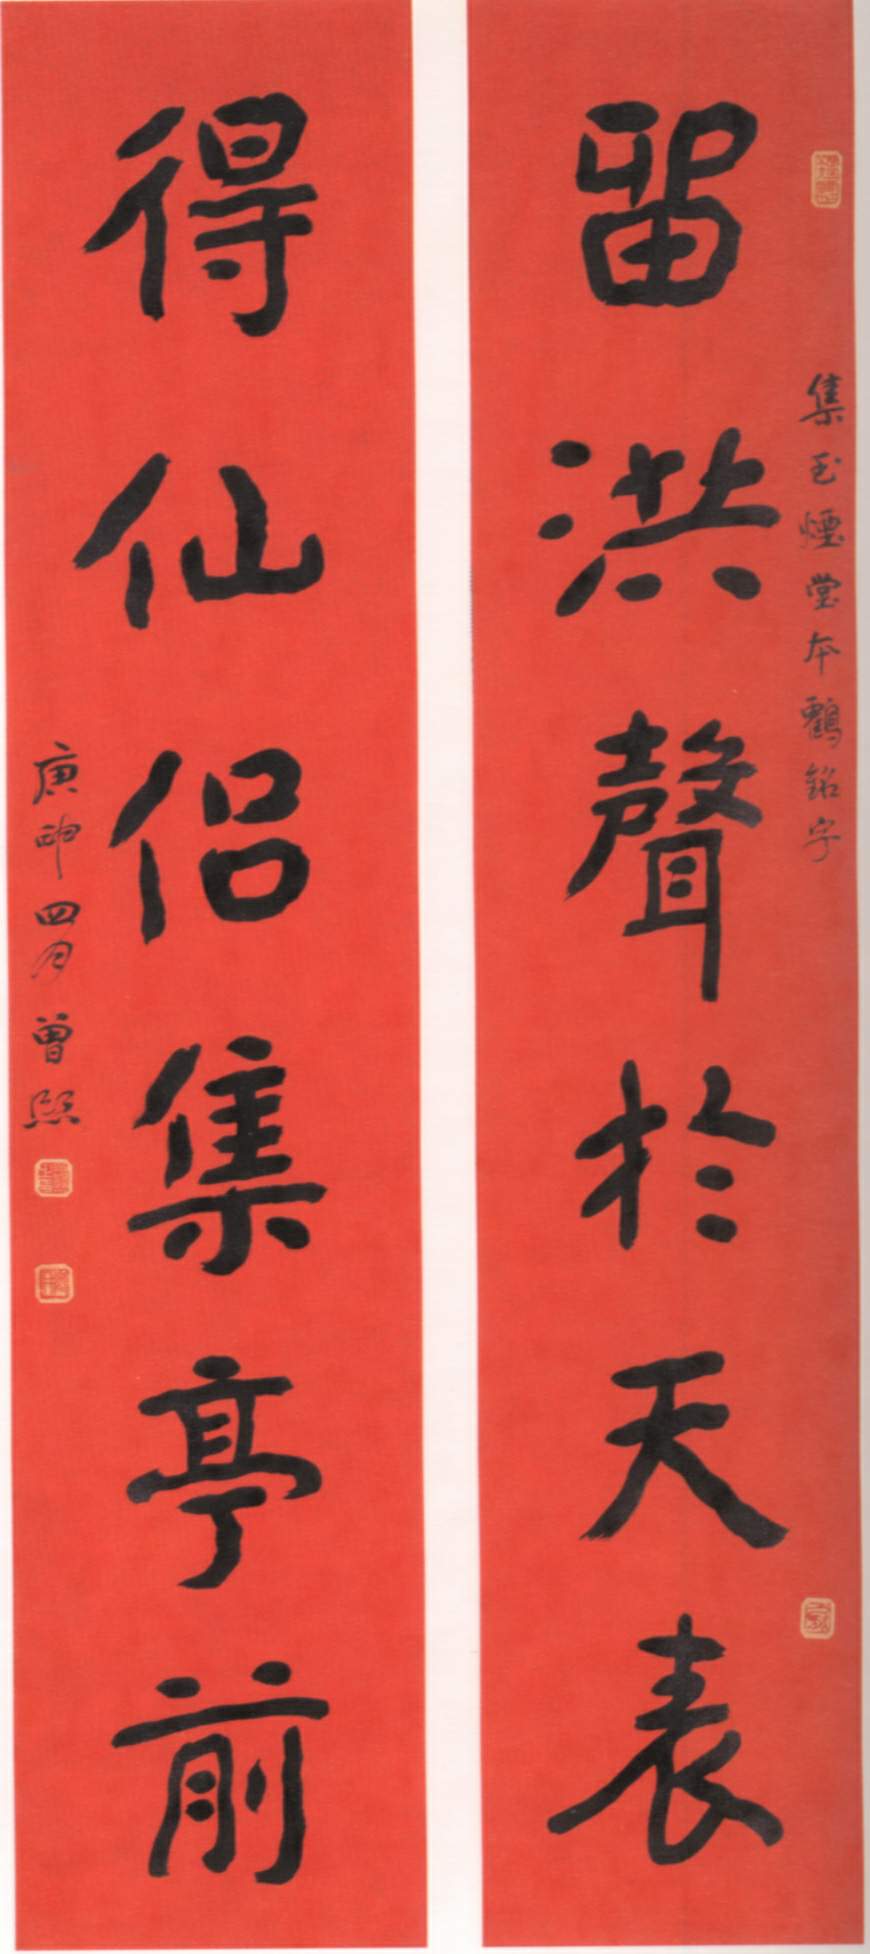 集玉煙堂本鶴銘字
留洪聲於天表
得仙侶集亭前
庚申四月曾熙